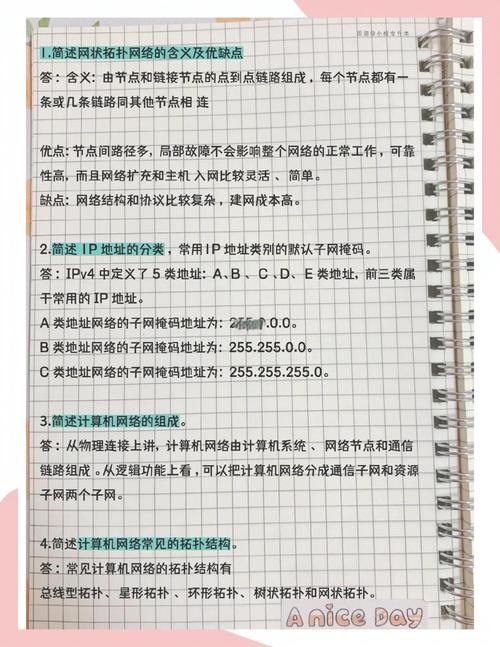 1.简述网状拓扑网络的含义及优缺点
答：含义：由节点和链接节点的点到点链路组成，每个节点都有一
条或几条链路同其他节点相 连
优点：节点间路径多，局部故障不会影响整个网络的正常工作，可靠
性高，而且网络扩充和主机 入网比较灵活 、简单。
缺点：网络结构和协议比较复杂，建网成本高。
2.简述 IP 地址的分类，常用IP 地址类别的默认子网掩码。
答：IPv4 中定义了 5 类地址：A、B 、C 、D、E 类地址，前三类属
于常用的 IP 地址。
A 类地址网络的子网掩码地址为：.0.0。
B 类地址网络的子网掩码地址为：255.255.0.0。
C 类地址网络的子网掩码地址为：255.255.255.0。
3.简述计算机网络的组成。
答：从物理连接上讲，计算机网络由计算机系统 、网络节点和通信
链路组成 。从逻辑功能上看，可以把计算机网络分成通信子网和资源
子网两个子网。
4.简述计算机网络常见的拓扑结构。
答：常见计算机网络的拓扑结构有
总线型拓扑、星形拓扑 、环形拓扑、树状拓扑和网状拓扑。
A nice DAY